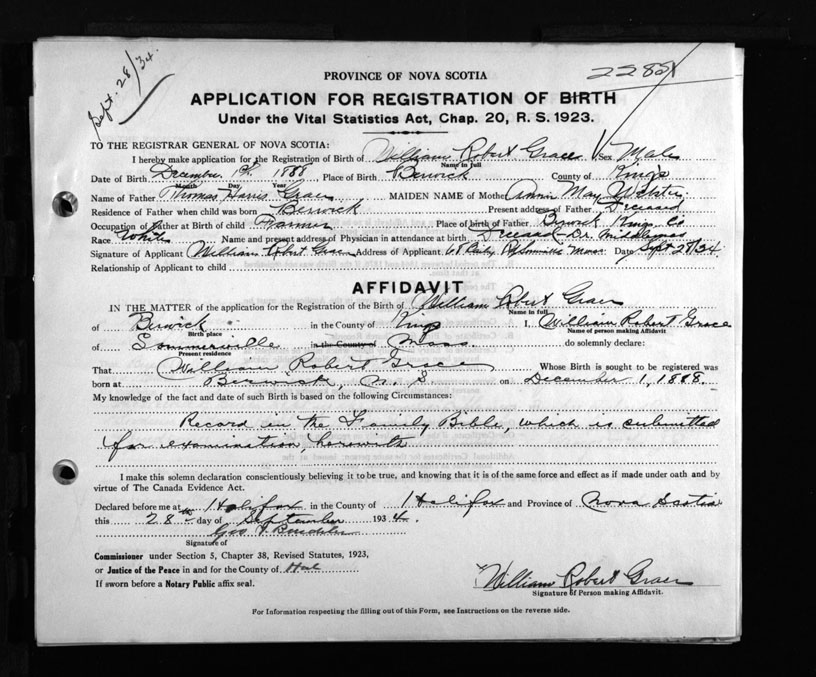 Sept. 28/34.
PROVINCE OF NOVA SCOTIA
APPLICATION FOR REGISTRATION OF BIRTH
Under the Vital Statistics Act, Chap. 20, R. S. 1923.
TO THE REGISTRAR GENERAL OF NOVA SCOTIA:
I hereby make application for the Registration of Birth of William Robert Grace Sex Male
Name in full
Date of Birth December 1st 1888 Place of Birth Berwick County of Kings
Month Day Year
Name of Father Thomas Harris Grace MAIDEN NAME of Mother Annie May Webster
Residence of Father when child was born Berwick Present address of Father Deceased
Occupation of Father at Birth of child Farmer Place of birth of Father Berwick Kings Co
Race White Name and present address of Physician in attendance at birth Deceased Dr.
Signature of Applicant William Robert Grace Address of Applicant Mass. Date Sept 28/34
Relationship of Applicant to child
AFFIDAVIT
IN THE MATTER of the application for the Registration of the Birth of William Robert Grace
Name in full
of Berwick in the County of Kings I, William Robert Grace
Birth place Name of person making Affidavit
of Sommerville in the County of Mass. do solemnly declare:
Present residence
That William Robert Grace Whose Birth is sought to be registered was
born at Berwick, N. S on December 1, 1888.
My knowledge of the fact and date of such Birth is based on the following Circumstances:
Record in the Family Bible, which is submitted
for examination, herewith
I make this solemn declaration conscientiously believing it to be true, and knowing that it is of the same force and effect as if made under oath and by
virtue of The Canada Evidence Act.
Declared before me at Halifax in the County of Halifax and Province of Nova Scotia
this 28th day of September 1934.
Signature of
Commissioner under Section 5, Chapter 38, Revised Statutes, 1923,
or Justice of the Peace in and for the County of Hal
If sworn before a Notary Public affix seal.
William Robert Grace
Signature of Person making Affidavit.
For Information respecting the filling out of this Form, see Instructions on the reverse side.